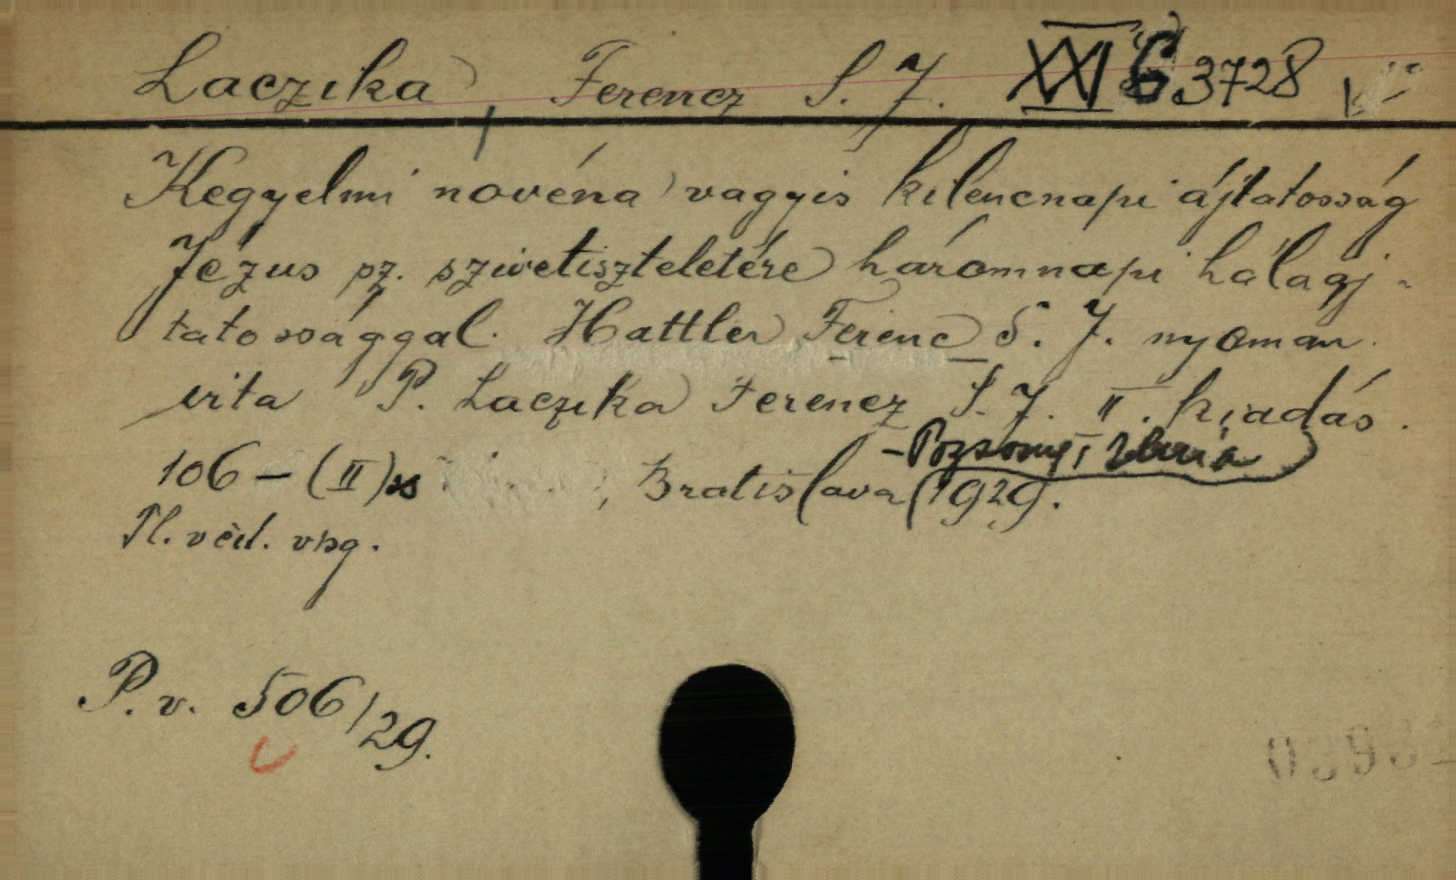 Laczika, Ferencz S. J. XXI C 3728
Kegyelmi novéna vagyis kilencnapi ájtatosság
Jézus sz. szivetiszteletére háromnapi hálaáj-
tatossággal. Hattler Ferenc S. J. nyomán
irta P. Laczika Ferencz S. J. II. kiadás.
- Pozsony,
106 - (II) s , Bratislava 1929.
P. v. 506/29.
0393